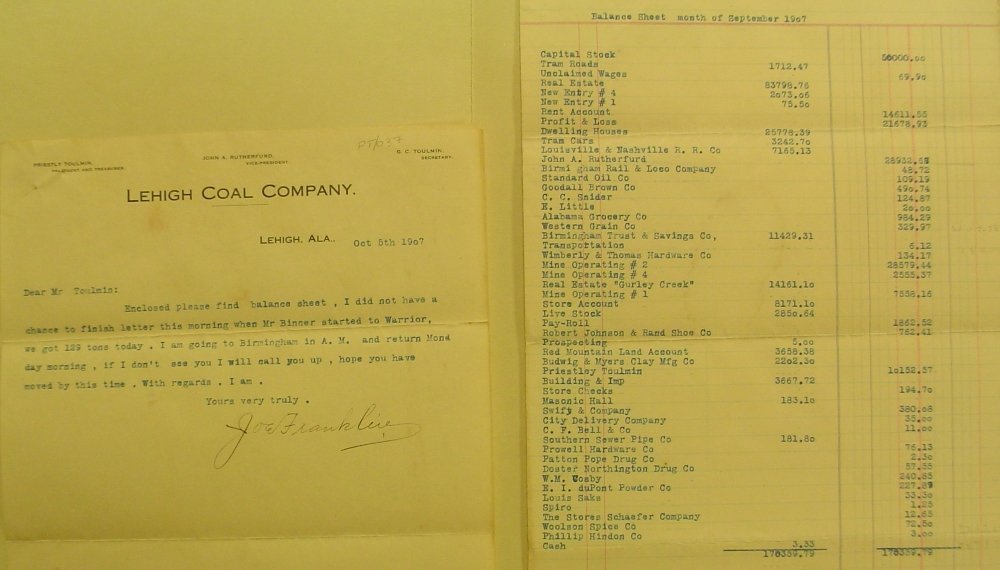 PRIESTLY TOULMIN,
PRESIDENT AND TREASURER.
JOHN A. RUTHERFURD,
VICE-PRESIDENT.
G. C. TOULMIN,
SECRETARY.
LEHIGH COAL COMPANY.
LEHIGH, ALA., Oct 5th 1907
Dear Mr Toulmin:
Enclosed please find balance sheet , I did not have a
chance to finish letter this morning when Mr Binner started to Warrior,
we got 129 tons today . I am going to Birmingham in A. M. and return Mond
day morning , if I don't see you I will call you up , hope you have
moved by this time . With regards . I am .
Yours very truly .
Joe Franklin
Balance Sheet month of September 1907
Capital Stock 50000.00
Tram Roads 1712.47
Unclaimed Wages 69.90
Real Estate 83798.76
New Entry # 4 2073.06
New Entry # 1 75.50
Rent Account 14611.55
Profit & Loss 21678.93
Dwelling Houses 25778.39
Tram Cars 3242.70
Louisville & Nashville R. R. Co 7165.13
John A. Rutherfurd
Birmi gham Rail & Loco Company 48.72
Standard Oil Co 109.19
Goodall Brown Co 490.74
C. C. Snider 124.87
E. Little 20.00
Alabama Grocery Co 984.29
Western Grain Co 329.97
Birmingham Trust & Savings Co, 11429.31
Transportation 6.12
Wimberly & Thomas Hardware Co 134.17
Mine Operating # 2 28579.44
Mine Operating # 4 2555.37
Real Estate "Gurley Creek" 14161.10
Mine Operating # 1 7558.16
Store Account 8171.10
Live Stock 2850.64
Pay-Roll 1862.52
Robert Johnson & Rand Shoe Co 762.41
Prospecting 5.00
Red Mountain Land Account 3658.38
Budwig & Myers Clay Mfg Co 2202.30
Priestley Toulmin 10152.57
Building & Imp 3667.72
Store Checks 194.70
Masonic Hall 183.10
Swift & Company 380.08
City Delivery Company 35.00
C. F. Bell & Co 11.00
Southern Sewer Pipe Co 181.80
Prowell Hardware Co 76.13
Patton Pope Drug Co 2.30
Doster Northington Drug Co 57.35
W.M. Cosby 240.65
E. I. duPont Powder Co 227.89
Louis Saks 33.30
Spiro 1.25
The Stores Schaefer Company 12.65
Woolson Spice Co 72.50
Phillip Hindon Co 3.00
Cash 3.33
178359.79 178359.79